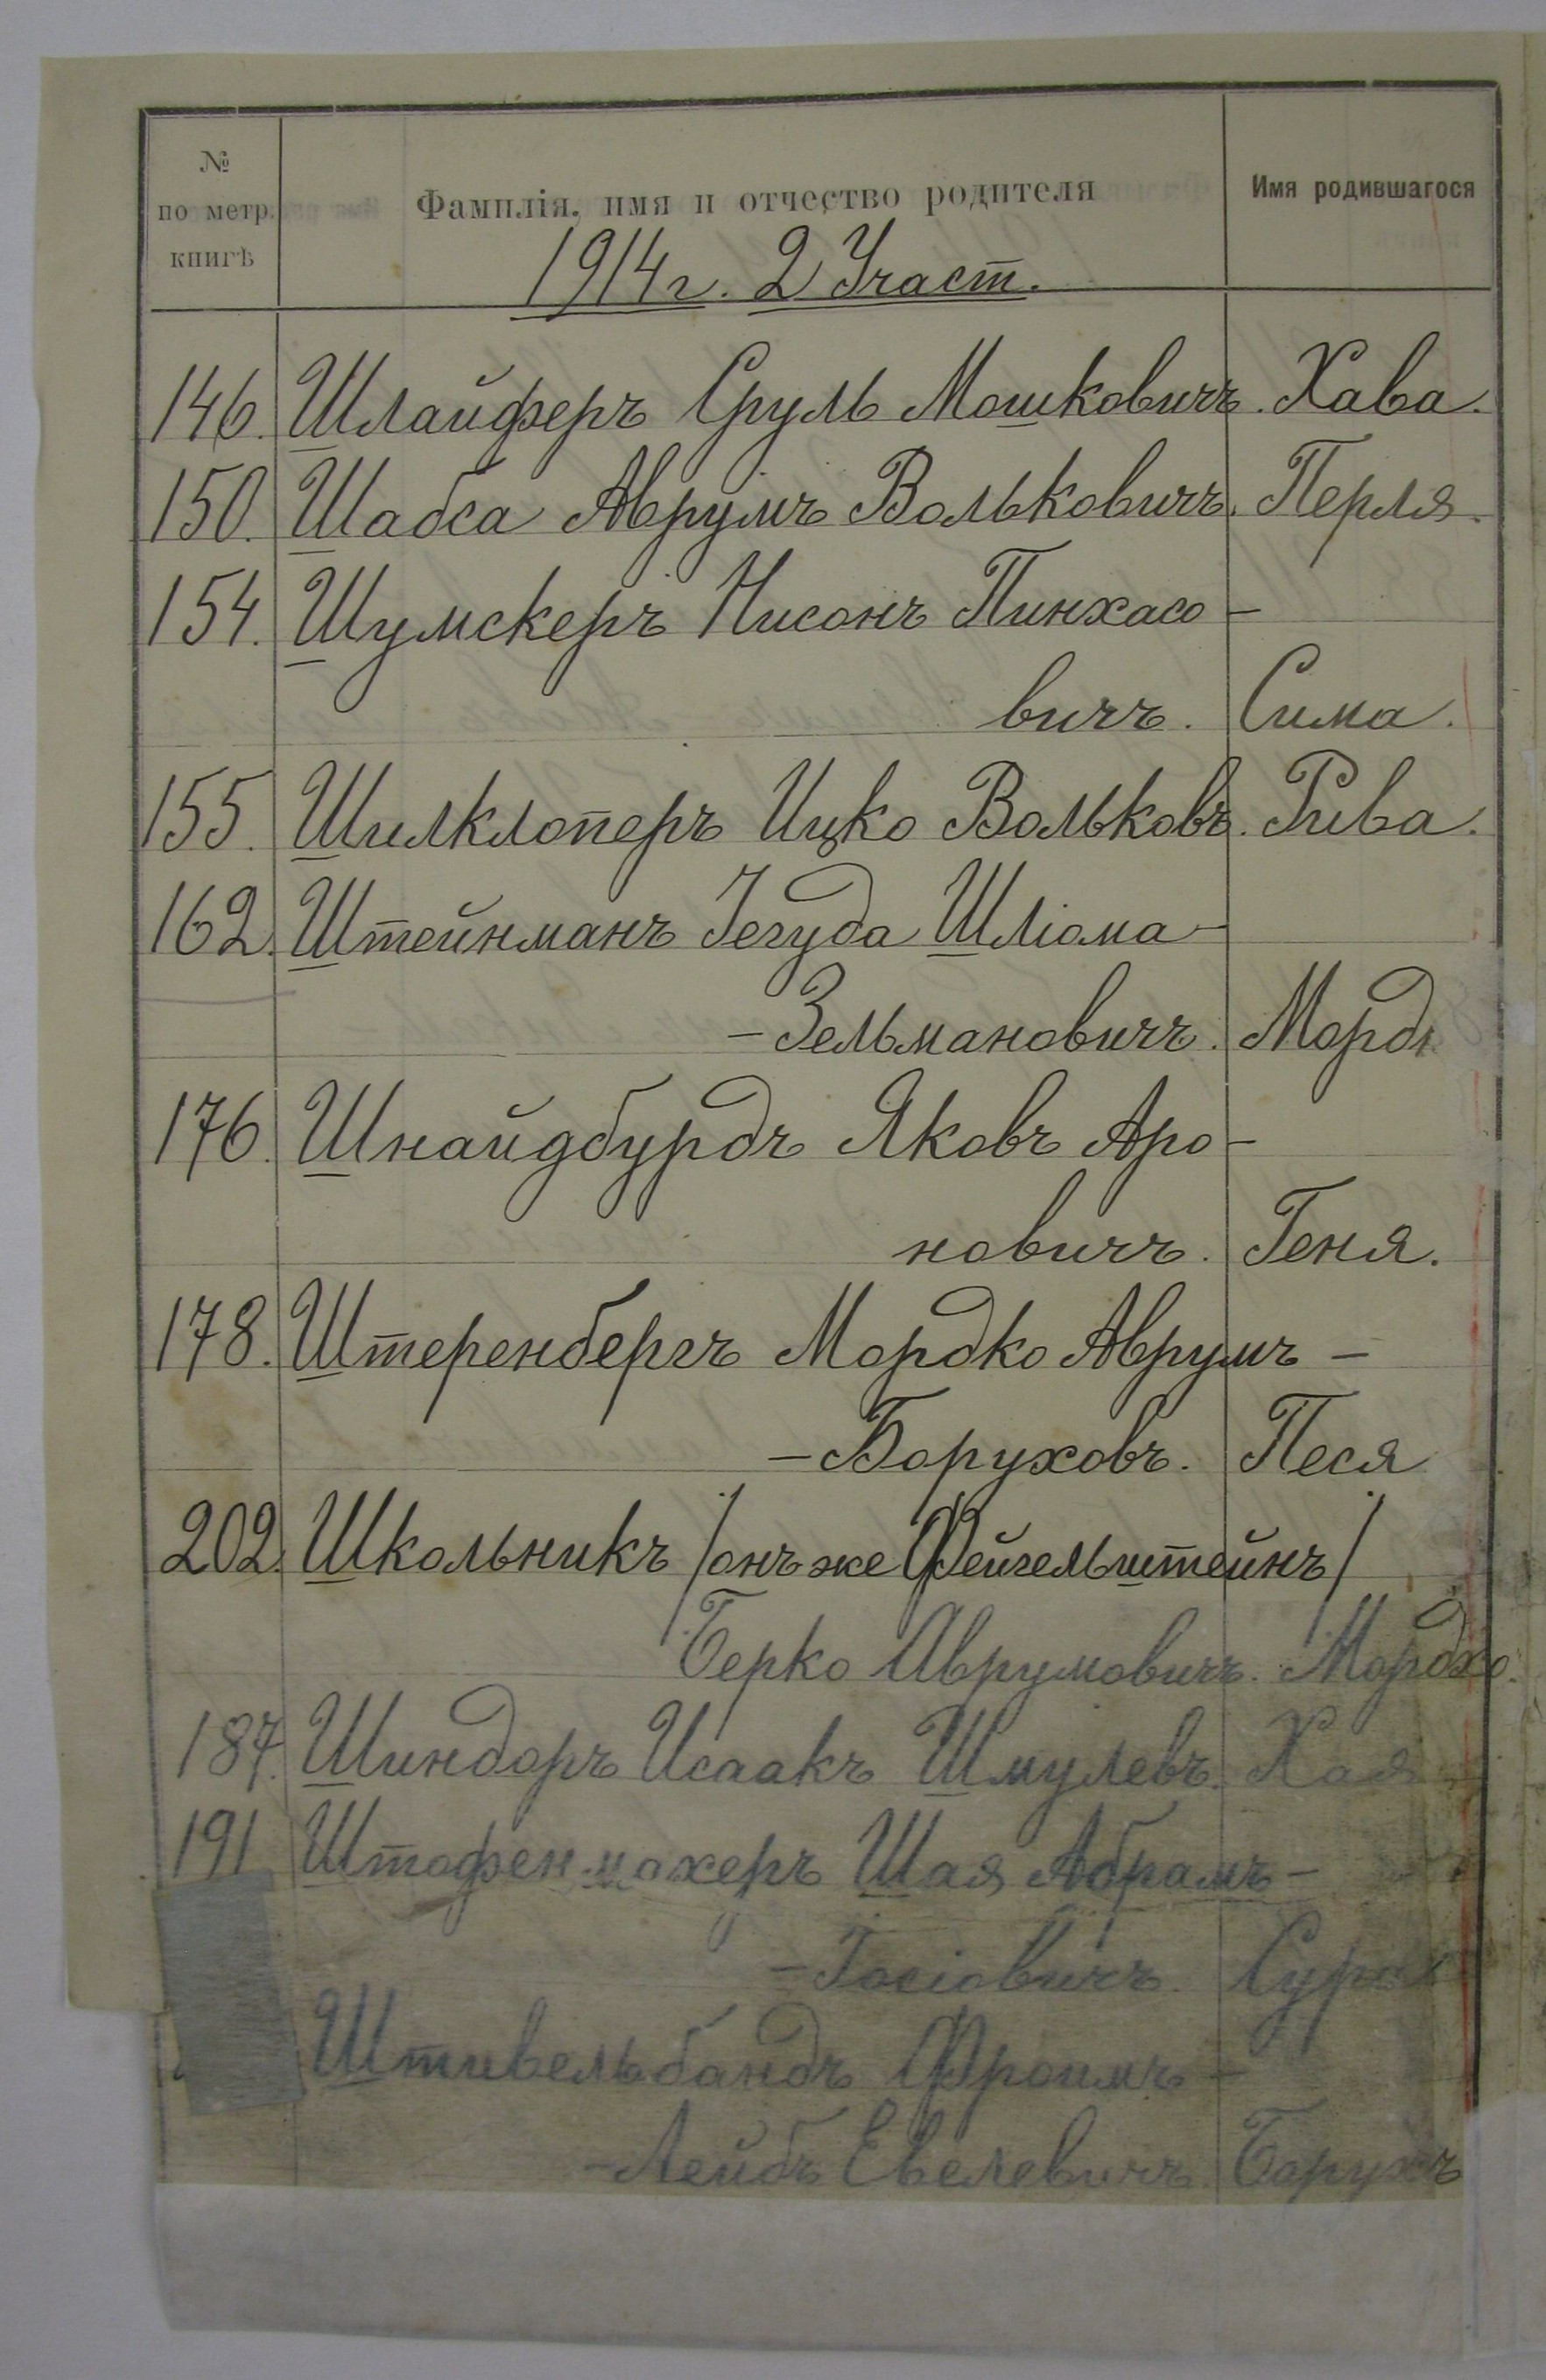 № по метр. книгѣ Фамилія, имя и отчество родителя Имя родившагося
1914 г. 2 Участ.
146. Шлайферъ Сруль Мошковичъ. Хава.
150. Шабса Аврумъ Вольковичъ. Перля.
154. Шумскеръ Нисонъ Пинхасо-
вичъ. Сима.
155. Шилклоперъ Ицко Вольковъ. Рива.
162. Штейнманъ Іегуда Шліома-
-Зельмановичъ. Мордк
176. Шнайдбурдъ Яковъ Аро-
новичъ. Геня.
178. Штеренбергъ Мордко Аврумъ-
-Боруховъ. Песя
202. Школьникъ /онъ же Фейгельштейнъ/
Берко Аврумовичъ. Мордхо.
187. Шиндоръ Исаакъ Шмулевъ. Хая
191 Штофенмахеръ Шая Абрамъ-
-Іосіовичъ. Сура
Штивельбандъ Фроимъ-
-Лейбъ Евелевичъ. Борухъ